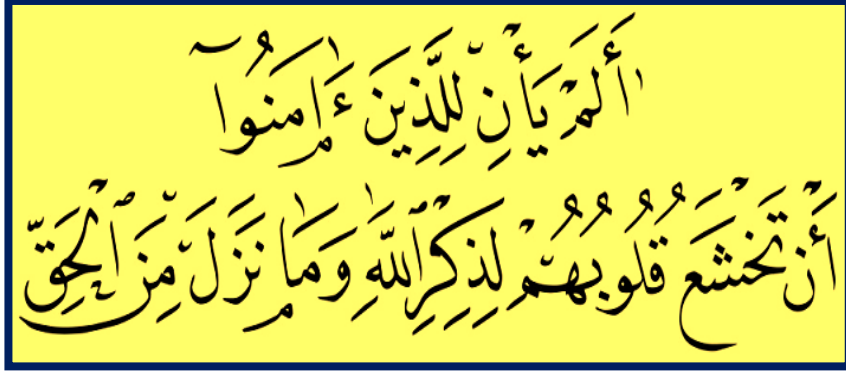 أَلَمْ يَأْنِ لِلَّذِينَ ءَامَنُوٓا
أَنْ تَخْشَعَ قُلُوبُهُمْ لِذِكْرِ ٱللَّهِ وَمَا نَزَلَ مِنَ ٱلْحَقِّ